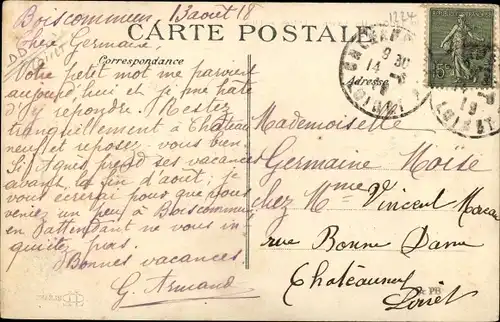 CARTE POSTALE
Boiscommun 13 août 18
1224
Chère Germaine,
Correspondance
Adresse
Votre petit mot me parvient
aujourd'hui et je me hâte
d'y répondre. Restez
tranquillement à Château
neuf et reposez vous bien.
Si Agnès prend ses vacances
avant la fin d'août, je
vous écrirai pour que vous
veniez un peu à Boiscommun
en attendant ne vous in-
quiétez pas.
Bonnes vacances
G. Armand
Mademoiselle
Germaine Moïse
chez Mme Vincent
rue Bonne Dame
Châteauneuf
Loiret
15c
9 30
14
LOIRET